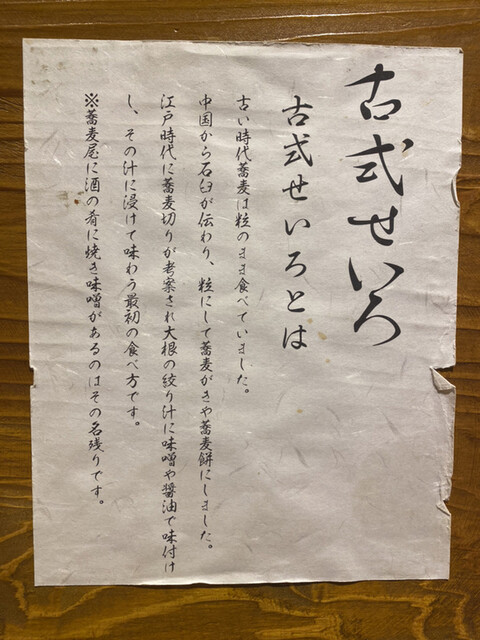 古式せいろ
古式せいろとは
古い時代蕎麦は粒のまま食べていました。
中国から石臼が伝わり、粒にして蕎麦がきや蕎麦餅にしました。
江戸時代に蕎麦切りが考案され大根の絞り汁に味噌や醤油で味付け
し、その汁に浸けて味わう最初の食べ方です。
※蕎麦屋に酒の肴に焼き味噌があるのはその名残りです。